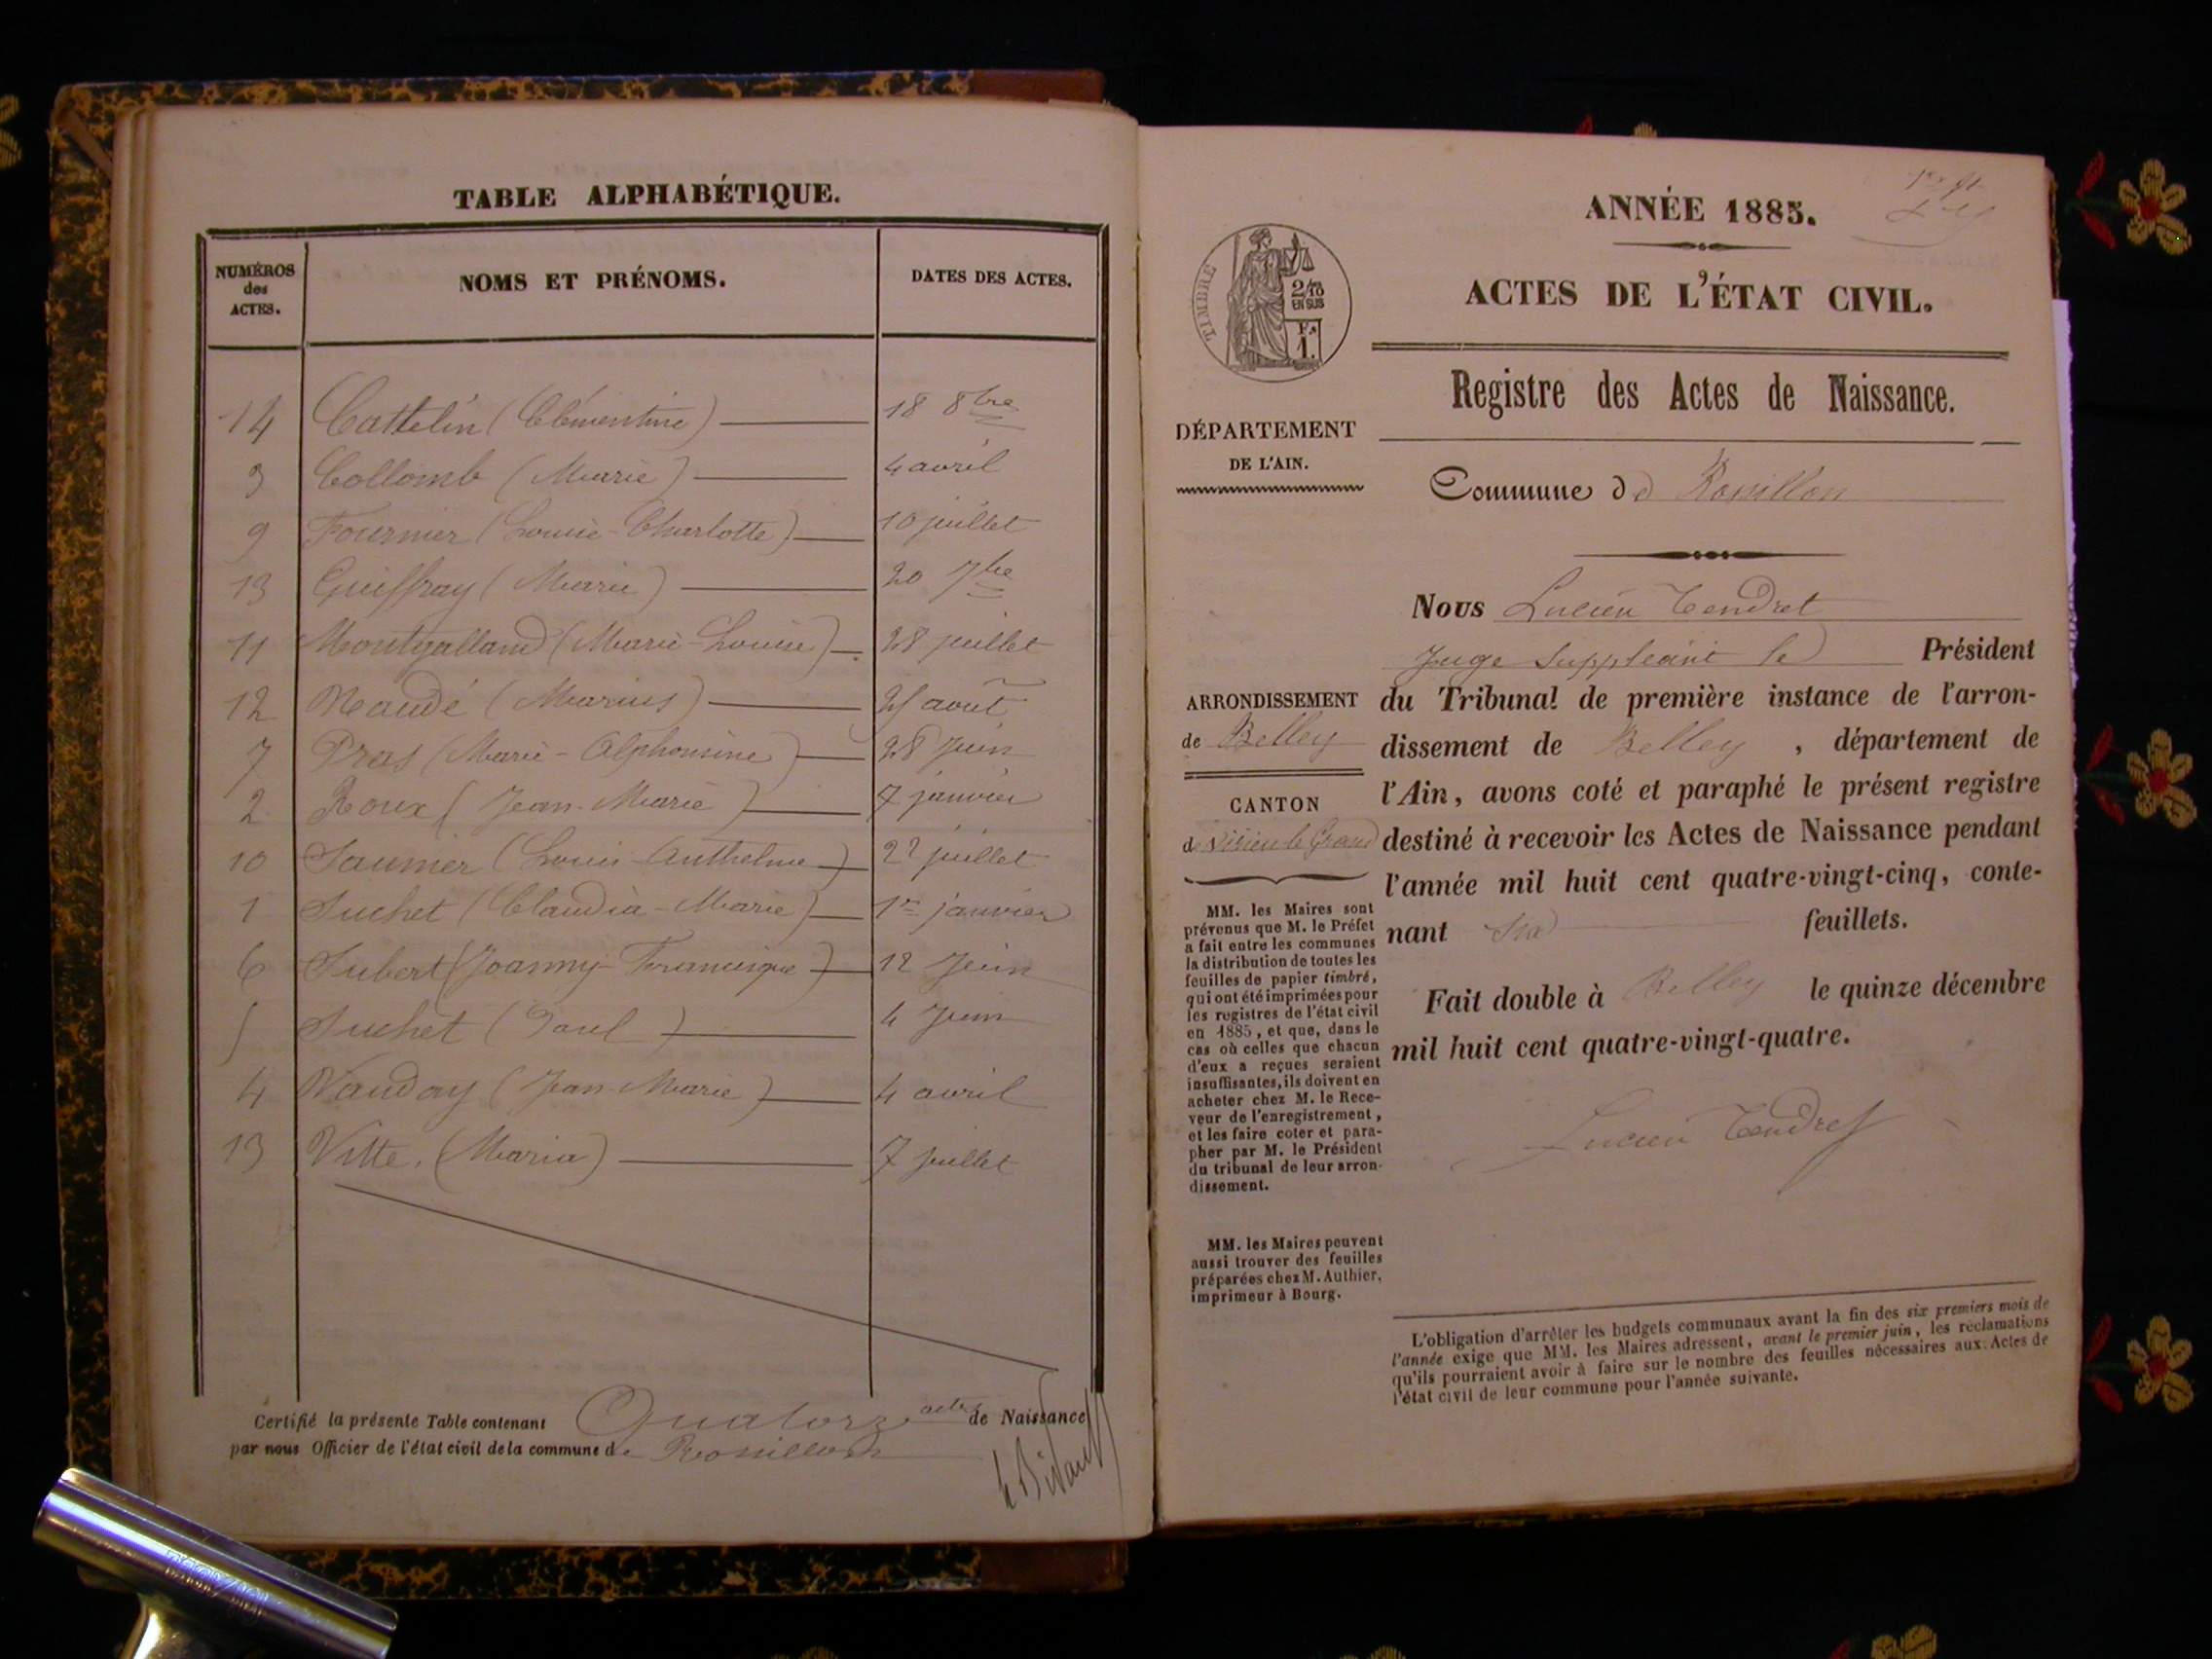 TABLE ALPHABÉTIQUE.
NUMÉROS des ACTES. NOMS ET PRÉNOMS. DATES DES ACTES.
14 Cattelin (Clémentine) 18 8bre
3 Collomb (Marie) 4 avril
9 Fournier (Louise-Charlotte) 10 juillet
13 Guiffray (Marie) 20 7bre
11 Montgalland (Marie-Louise) 28 juillet
12 Naudé (Marius) 25 août
7 Pras (Marie-Alphonsine) 28 Juin
2 Roux (Jean-Marie) 7 janvier
10 Saunier (Louis-Anthelme) 22 juillet
1 Suchet (Claudia-Marie) 1er janvier
6 Subert (Joanny-Francisque) 12 Juin
5 Suchet (Paul) 4 Juin
4 Vauday (Jean-Marie) 4 avril
13 Vitte. (Maria) 7 juillet
Certifié la présente Table contenant Quatorze actes de Naissance
par nous Officier de l'état civil de la commune de Rossillon
ANNÉE 1885.
ACTES DE L'ÉTAT CIVIL.
TIMBRE
2/10
EN SUS
Fc.
1.
Registre des Actes de Naissance.
DÉPARTEMENT
DE L'AIN.
Commune d de Rossillon
Nous Lucien Tendret
Juge Suppléant le Président
ARRONDISSEMENT
de Belley
du Tribunal de première instance de l'arron-
dissement de Belley, département de
l'Ain, avons coté et paraphé le présent registre
destiné à recevoir les Actes de Naissance pendant
l'année mil huit cent quatre-vingt-cinq, conte-
nant Six feuillets.
Fait double à Belley le quinze décembre
mil huit cent quatre-vingt-quatre.
Lucien Tendret
CANTON
de Virieu le Grand
MM. les Maires sont
prévenus que M. le Préfet
a fait entre les communes
la distribution de toutes les
feuilles de papier timbré,
qui ont été imprimées pour
les registres de l'état civil
en 1885, et que, dans le
cas où celles que chacun
d'eux a reçues seraient
insuffisantes, ils doivent en
acheter chez M. le Rece-
veur de l'enregistrement,
et les faire coter et para-
pher par M. le Président
du tribunal de leur arron-
dissement.
MM. les Maires peuvent
aussi trouver des feuilles
préparées chez M. Authier,
imprimeur à Bourg.
L'obligation d'arrêter les budgets communaux avant la fin des six premiers mois de
l'année exige que MM. les Maires adressent, avant le premier juin, les réclamations
qu'ils pourraient avoir à faire sur le nombre des feuilles nécessaires aux Actes de
l'état civil de leur commune pour l'année suivante.